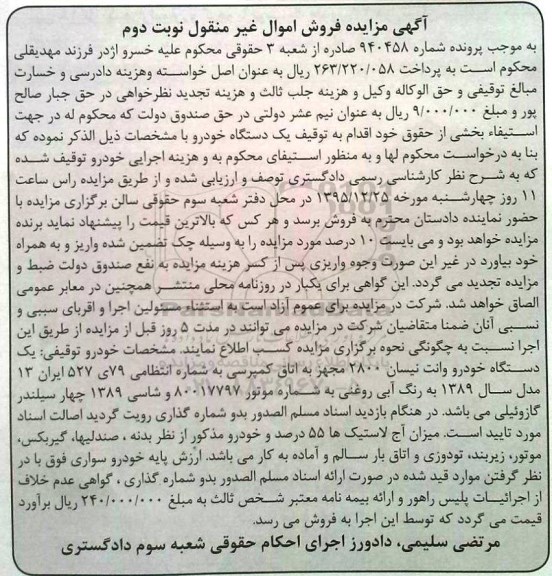 آگهی مزایده فروش اموال غیر منقول نوبت دوم
به موجب پرونده شماره ۹۴۰۴۵۸ صادره از شعبه ۳ حقوقی محکوم علیه خسرو اژدر فرزند مهدیقلی
محکوم است به پرداخت ۲۶۳/۲۲۰/۰۵۸ ریال به عنوان اصل خواسته وهزینه دادرسی و خسارت
مبالغ توقیفی و حق الوکاله وکیل و هزینه جلب ثالث و هزینه تجدید نظرخواهی در حق جبار صالح
پور و مبلغ ۹/۰۰۰/۰۰۰ ریال به عنوان نیم عشر دولتی در حق صندوق دولت که محکوم له در جهت
استیفاء بخشی از حقوق خود اقدام به توقیف یک دستگاه خودرو با مشخصات ذیل الذکر نموده که
بنا به درخواست محکوم لها و به منظور استیفای محکوم به و هزینه اجرایی خودرو توقیف شده
که به شرح نظر کارشناسی رسمی دادگستری توصف و ارزیابی شده و از طریق مزایده راس ساعت
۱۱ روز چهارشنبه مورخه ۱۳۹۵/۱۲/۲۵ در محل دفتر شعبه سوم حقوقی سالن برگزاری مزایده با
حضور نماینده دادستان محترم به فروش برسد و هر کس که بالاترین قیمت را پیشنهاد نماید برنده
مزایده خواهد بود و می بایست ۱۰ درصد مورد مزایده را به وسیله چک تضمین شده واریز و به همراه
خود بیاورد در غیر این صورت وجوه واریزی پس از کسر هزینه مزایده به نفع صندوق دولت ضبط و
مزایده تجدید می گردد. این گواهی برای یکبار در روزنامه محلی منتشر همچنین در معابر عمومی
الصاق خواهد شد. شرکت در مزایده برای عموم آزاد است به استثناء مسئولین اجرا و اقربای سببی و
نسبی آنان ضمنا متقاضیان شرکت در مزایده می توانند در مدت ۵ روز قبل از مزایده از طریق این
اجرا نسبت به چگونگی نحوه برگزاری مزایده کسب اطلاع نمایند. مشخصات خودرو توقیفی: یک
دستگاه خودرو وانت نیسان ۲۸۰۰ مجهز به اتاق کمپرسی به شماره انتظامی ۷۹ی ۵۲۷ ایران ۱۳
مدل سال ۱۳۸۹ به رنگ آبی روغنی به شماره موتور ۸۰۰۱۷۷۹۷ و شاسی ۱۳۸۹ چهار سیلندر
گازوئیلی می باشد. در هنگام بازدید اسناد مسلم الصدور بدو شماره گذاری رویت گردید اصالت اسناد
مورد تایید است. میزان آج لاستیک ها ۵۵ درصد و خودرو مذکور از نظر بدنه ، صندلیها، گیربکس،
موتور، زیربند، تودوزی و اتاق بار سالم و آماده به کار می باشد. ارزش پایه خودرو سواری فوق با در
نظر گرفتن موارد قید شده در صورت ارائه اسناد مسلم الصدور بدو شماره گذاری ، گواهی عدم خلاف
از اجرائیات پلیس راهور و ارائه بیمه نامه معتبر شخص ثالث به مبلغ ۲۴۰/۰۰۰/۰۰۰ ریال برآورد
قیمت می گردد که توسط این اجرا به فروش می رسد.
مرتضی سلیمی، دادورز اجرای احکام حقوقی شعبه سوم دادگستری